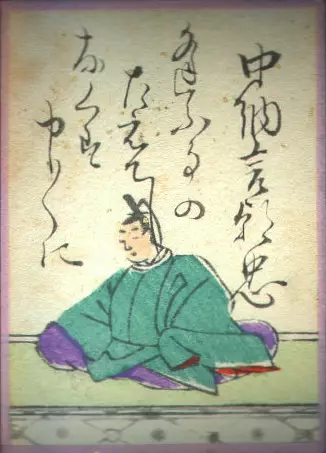 中納言朝忠
あふことの
たえてし
なくは
中〱に